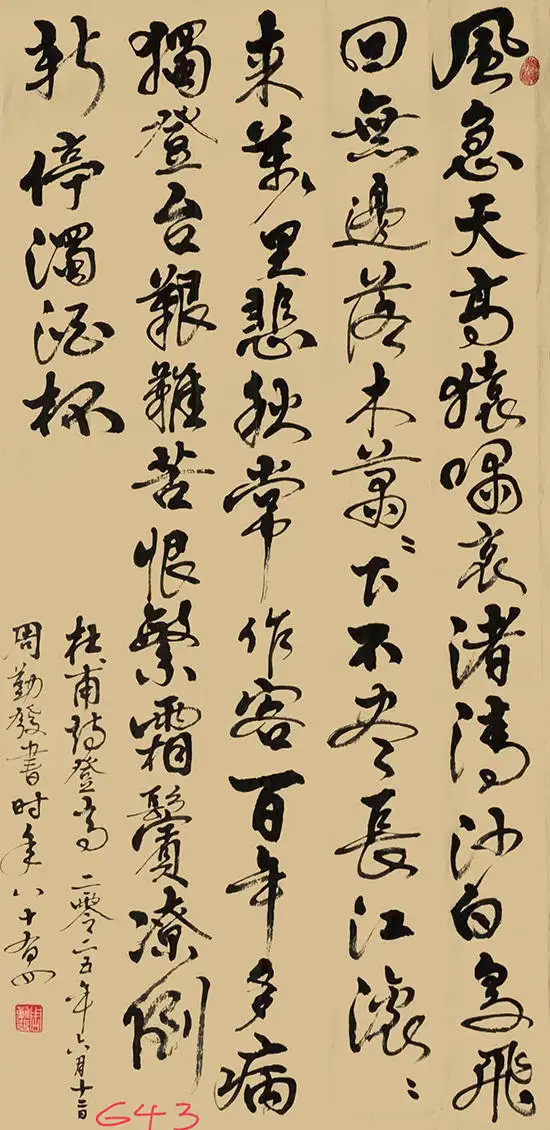 風急天高猿嘯哀渚清沙白鳥飛
回無邊落木蕭〻下不尽長江滚〻
来萬里悲秋常作客百年多病
獨登台艱難苦恨繁霜鬢潦倒
新停濁酒杯
杜甫詩登高 二零二五年六月十二日
周勤發書时年八十有四
643